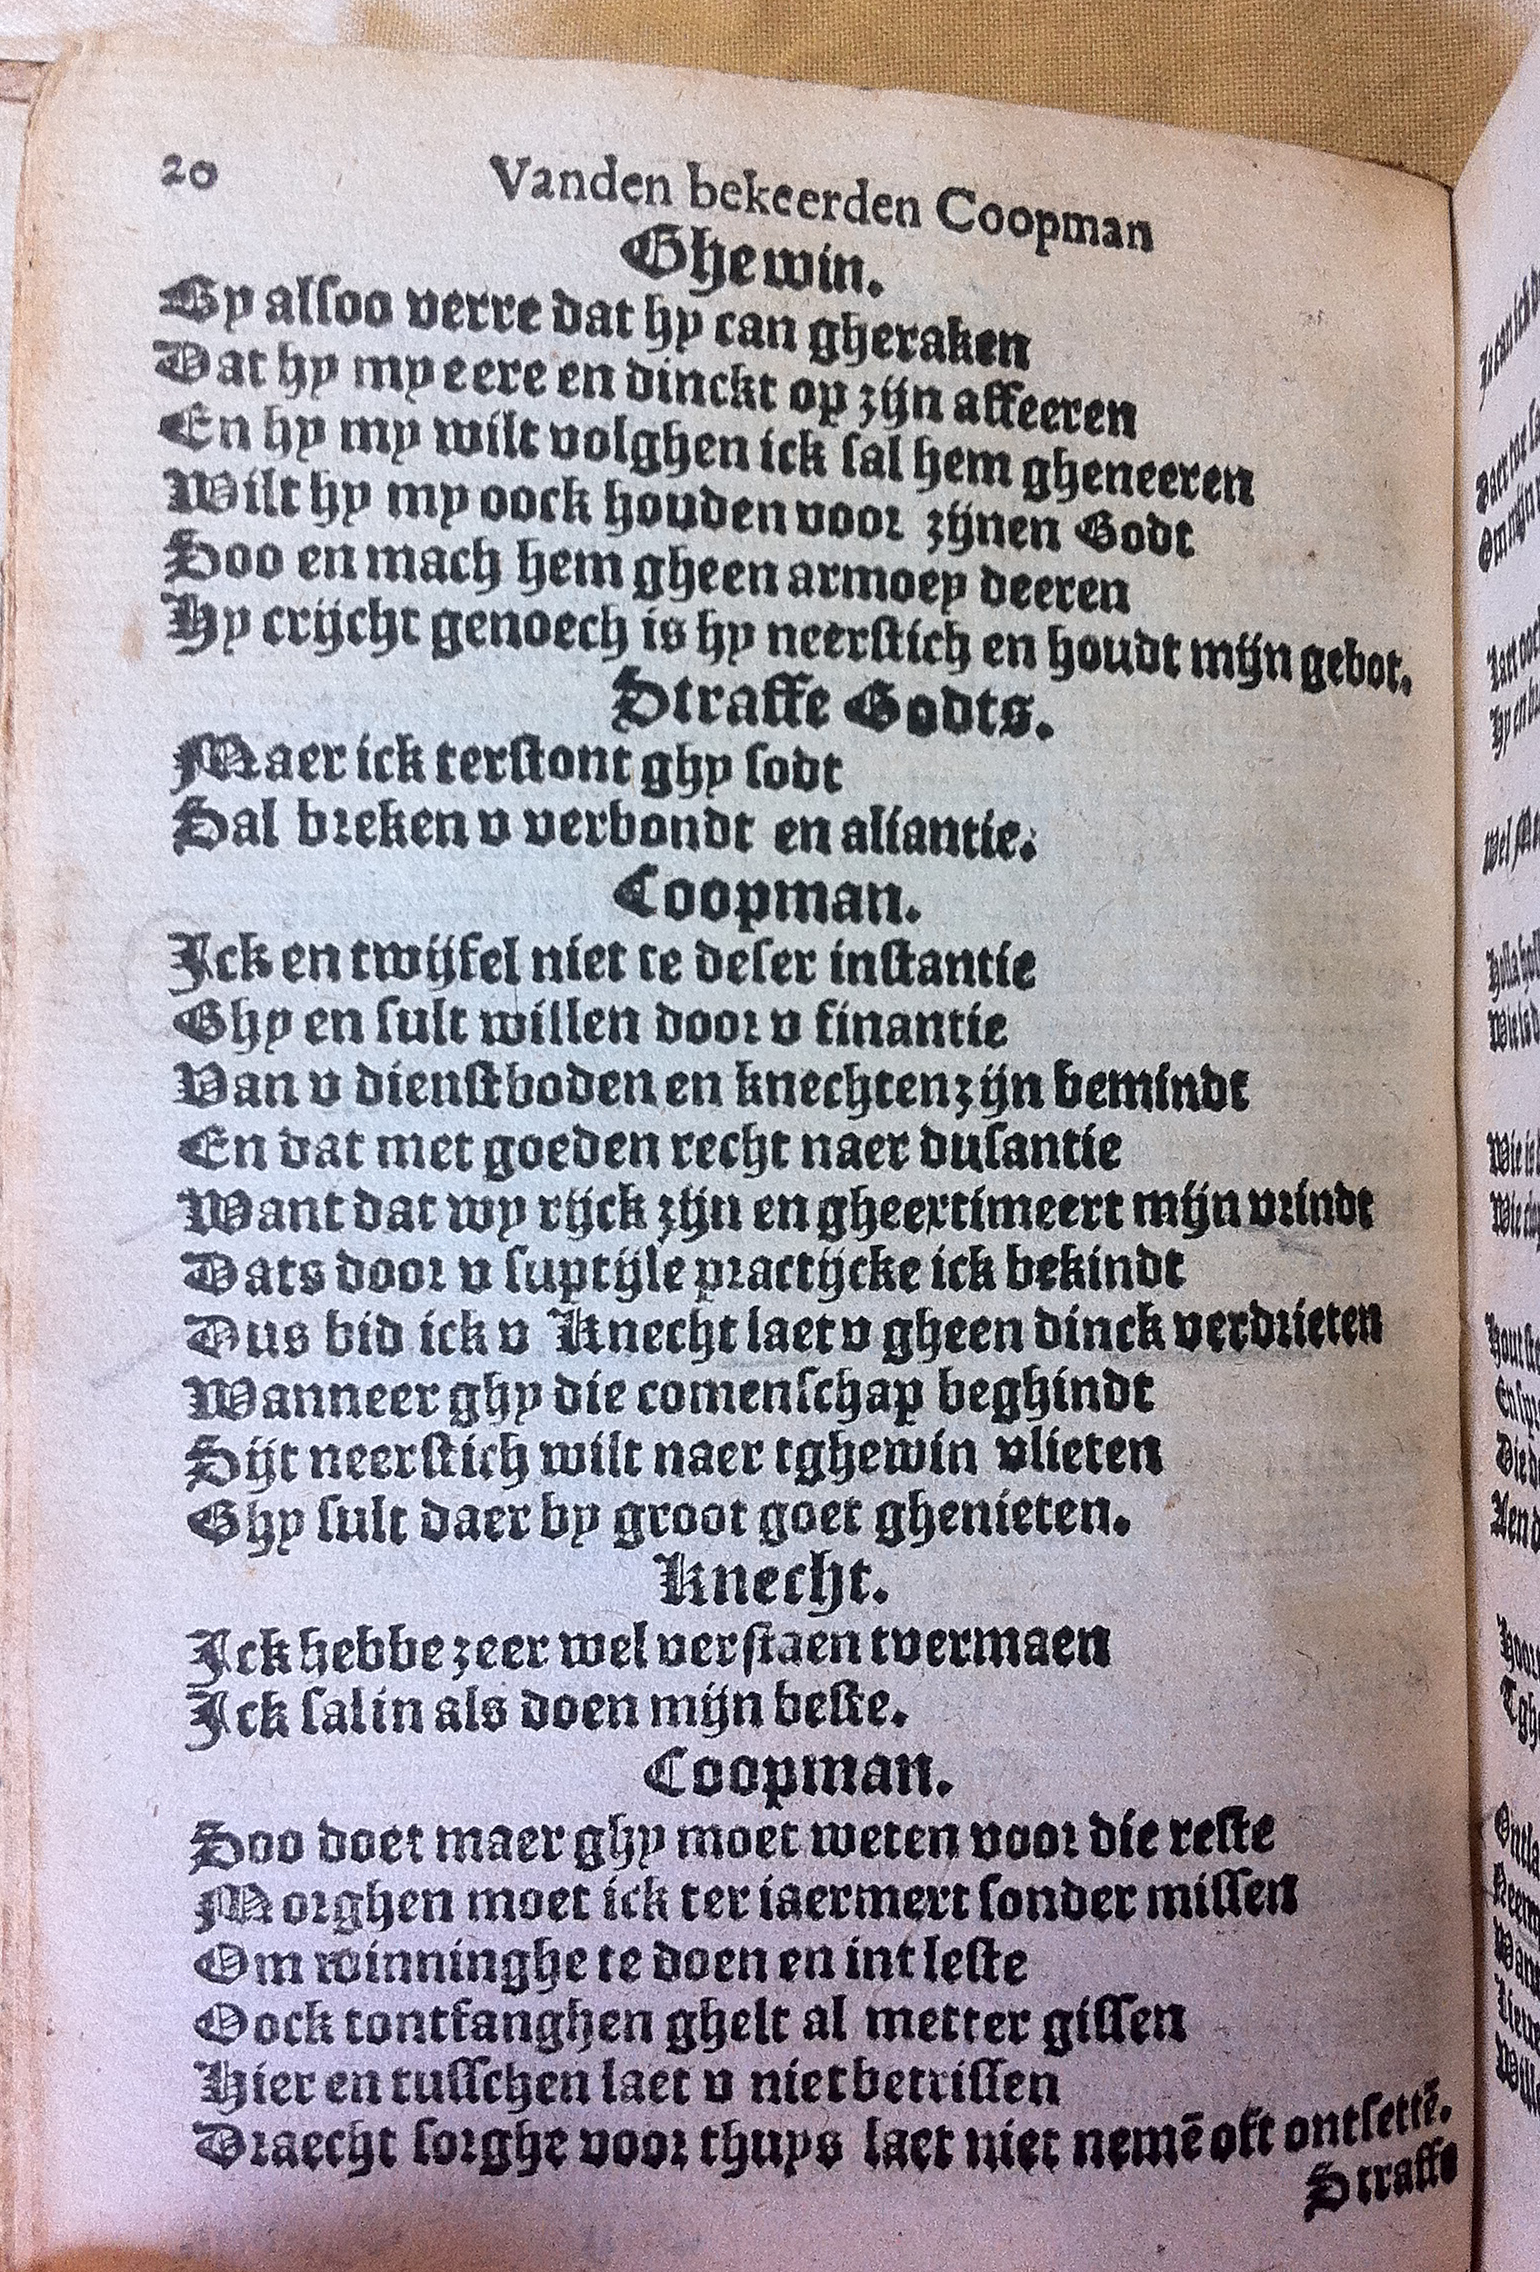 20 Vanden bekeerden Coopman
Ghewin.
Gy alsoo verre dat hy can gheraken
Dat hy my eere en dinckt op zijn affeeren
En hy my wilt volghen ick sal hem gheneeren
Wilt hy my oock houden voor zijnen Godt
Soo en mach hem gheen armoey deeren
Hy crijcht genoech is hy neerstich en houdt mijn gebot.
Straffe Godts.
Maer ick terstont ghy sodt
Sal breken v verbondt en aliantie.
Coopman.
Ick en twijfel niet te deser instantie
Ghy en sult willen door v finantie
Van v dienstboden en knechten zijn bemindt
En dat met goeden recht naer dusantie
Want dat wy rijck zijn en gheextimeert mijn vrindt
Dats door v suptijle practijcke ick bekindt
Dus bid ick v Knecht laet v gheen dinck verdrieten
Wanneer ghy die comenschap beghindt
Sijt neerstich wilt naer tghewin vlieten
Ghy sult daer by groot goet ghenieten.
Knecht.
Ick hebbe zeer wel verstaen tvermaen
Ick sal in als doen mijn beste.
Coopman.
Soo doet maer ghy moet weten voor die reste
Morghen moet ick ter iaermert sonder missen
Om winninghe te doen en int leste
Oock tontfanghen ghelt al metter gissen
Hier en tusschen laet v niet betrissen
Draecht sorghe voor thuys laet niet nemē oft ontsettē.
Straffe